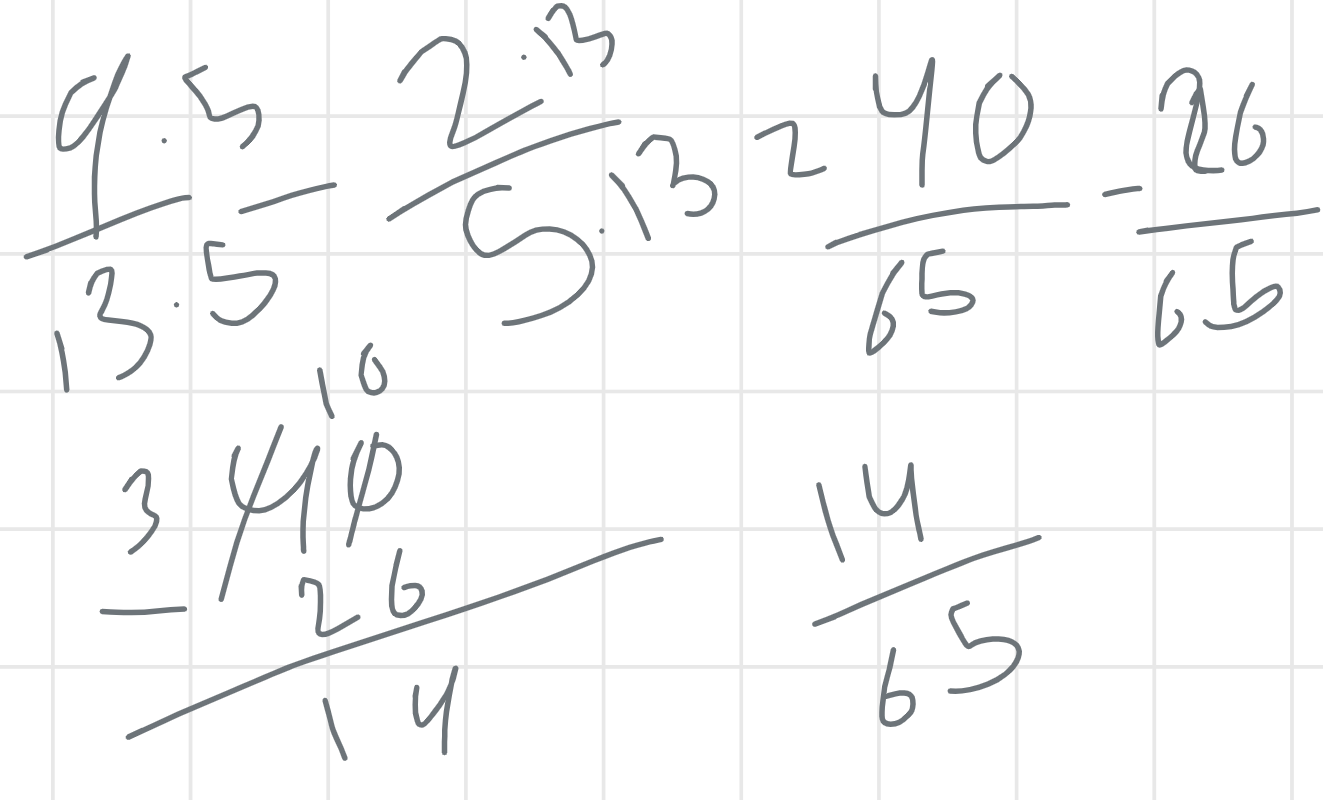 9·5/13·5 − 2·13/5·13 = 40/65 − 26/65
10
3 40
− 26
14
14/65